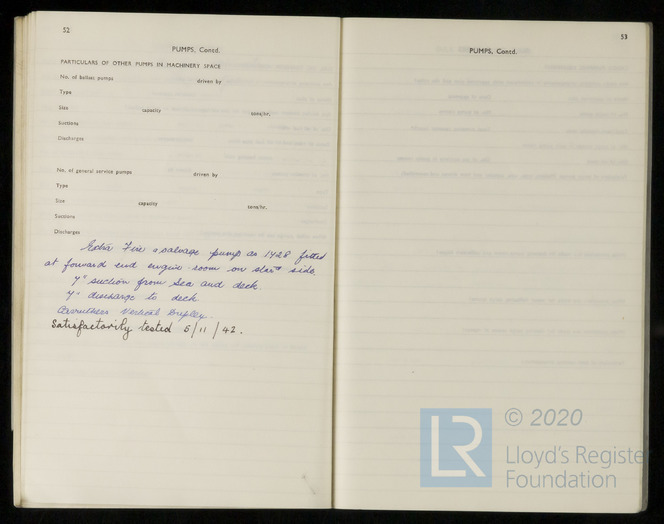 52
PUMPS, Contd.
PARTICULARS OF OTHER PUMPS IN MACHINERY SPACE
No. of ballast pumps driven by
Type
Size capacity tons/hr.
Suctions
Discharges
No. of general service pumps driven by
Type
Size capacity tons/hr.
Suctions
Discharges
Extra Fire & salvage pump as 1428 fitted
at forward end engine room on starbd side
7" suction from sea and deck.
7" discharge to deck.
Carruthers Vertical Duplex.
Satisfactorily tested 5/11/42.
53
PUMPS, Contd.
LR
© 2020
Lloyd's Registe
Foundation